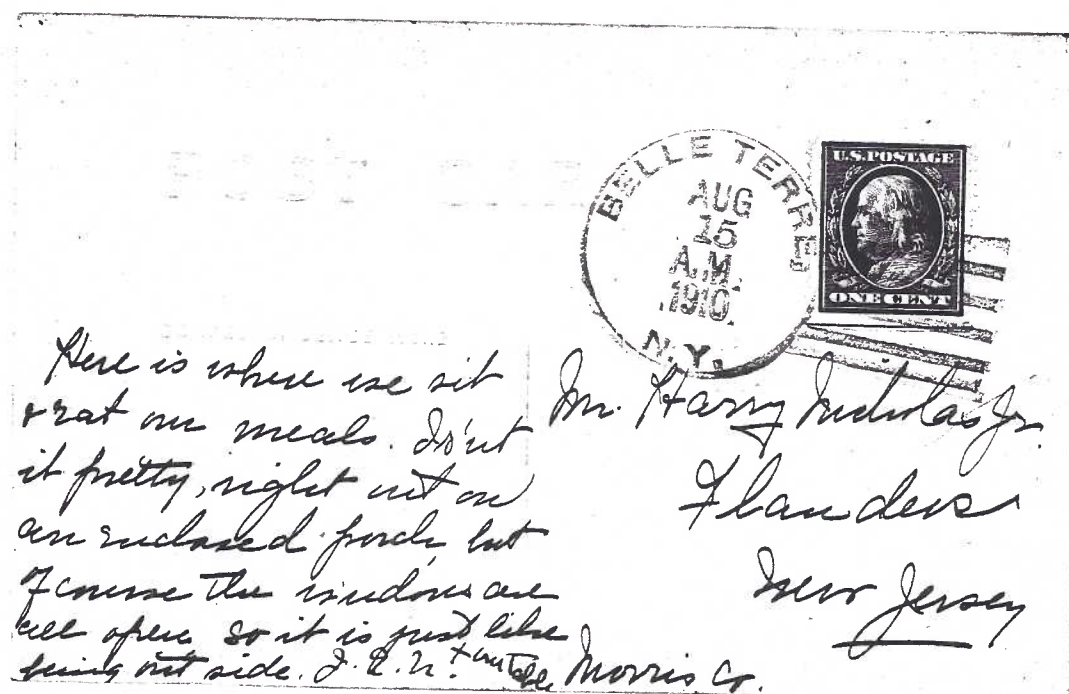 BELLE TERRE
AUG
15
A.M.
1910
N.Y.
U.S. POSTAGE
ONE CENT
Here is where we sit
& eat our meals. Is'nt
it pretty, right out on
an enclosed porch, but
of course the windows are
all open, so it is just like
being out side.
Mr. Harry Nicholas Jr.
Flanders
New Jersey
Morris Co.